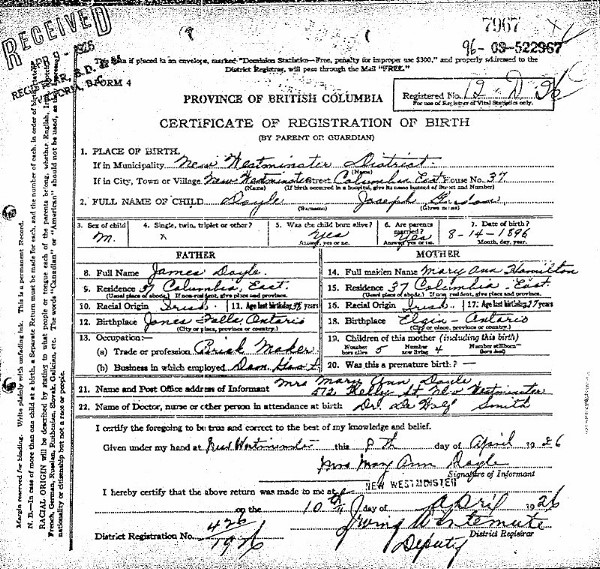 RECEIVED
APR 9 - 1926
REGISTRAR, B.D. & M.
VICTORIA, B.C.
FORM 4
7967
96-09-522967
if placed in an envelope, marked "Dominion Statistics—Free, penalty for improper use $300," and properly addressed to the
District Registrar, will pass through the Mail "FREE."
Registered No.
For use of Registrar of Vital Statistics only.
PROVINCE OF BRITISH COLUMBIA
CERTIFICATE OF REGISTRATION OF BIRTH
(BY PARENT OR GUARDIAN)
1. PLACE OF BIRTH.
If in Municipality New Westminster District
(Name)
If in City, Town or Village New Westminster Street Columbia East House No. 37
(Name) (If birth occurred in a hospital, give its name instead of Street and Number)
2. FULL NAME OF CHILD Doyle Joseph
(Surname) (Given names)
3. Sex of child M.
4. Single, twin, triplet or other? X
5. Was the child born alive? Yes
Answer, yes or no.
6. Are parents married? Yes
Answer, yes or no.
7. Date of birth? 8-14-1896
Month, day, year.
FATHER
8. Full Name James Doyle
9. Residence 37 Columbia East
(Usual place of abode.) If non-resident, give place and province.
10. Racial Origin Irish 11. Age last birthday years
12. Birthplace Jones Falls Ontario
(City or place, province or country.)
13. Occupation:
(a) Trade or profession Brick Maker
(b) Business in which employed
MOTHER
14. Full maiden Name Mary Ann Hamilton
15. Residence 37 Columbia East
(Usual place of abode.) If non-resident, give place and province.
16. Racial Origin Irish 17. Age last birthday years
18. Birthplace Elgin Ontario
(City or place, province or country.)
19. Children of this mother (including this birth)
Number born alive 5 Number now living 4 Number stillborn (born dead)
20. Was this a premature birth?
21. Name and Post Office address of Informant Mrs Mary Ann Doyle
St New Westminster
22. Name of Doctor, nurse or other person in attendance at birth Dr. Smith
I certify the foregoing to be true and correct to the best of my knowledge and belief.
Given under my hand at New Westminster this 8th day of April 1926
Mrs Mary Ann Doyle
Signature of Informant
NEW WESTMINSTER
I hereby certify that the above return was made to me at
on the 10th day of April 1926
District Registration No. 426
1926
Deputy District Registrar
Margin reserved for binding. Write plainly with unfading ink. This is a permanent Record.
N. B.—In case of more than one child at a birth, a Separate Return must be made for each, and the number of each, in order of birth
RACIAL ORIGIN will be described by stating to what people or tongue each of the parents belong, whether English,
French, German, Russian, Ruthenian, Slovak, Galician, etc. The words "Canadian" or "American" should not be used, as they
nationality or citizenship but not a race or people.